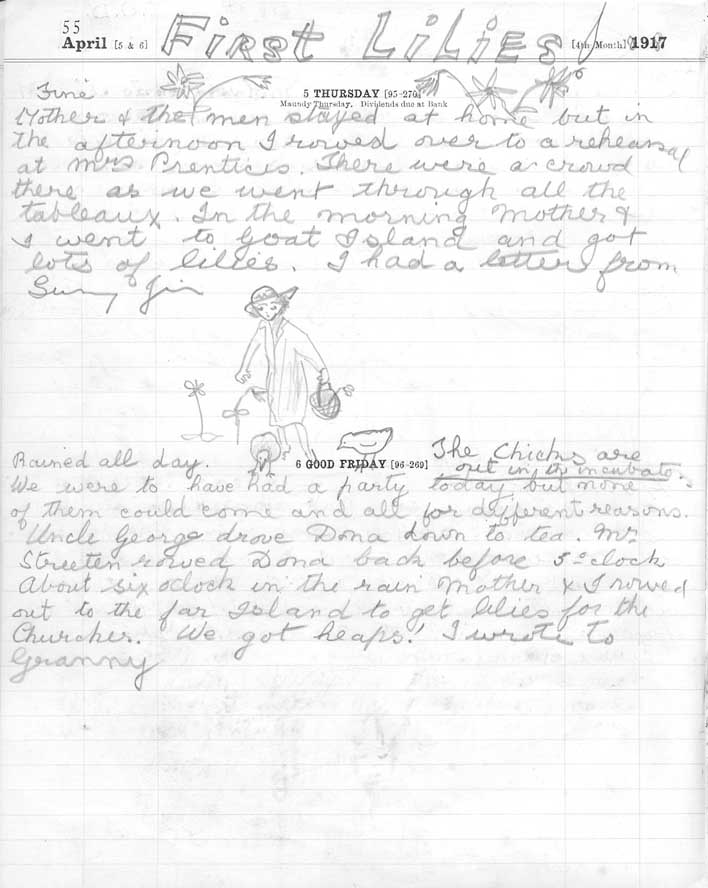 55
April [5 & 6] First Lilies! [4th Month] 1917
Fine
5 THURSDAY [95-270]
Maundy Thursday. Dividends due at Bank
Mother & the men stayed at home but in
the afternoon I rowed over to a rehearsal
at Mrs Prentices. There were a crowd
there as we went through all the
tableaux. In the morning Mother &
I went to Goat Island and got
lots of lilies. I had a letter from
Sunny Jim
Rained all day.
6 GOOD FRIDAY [96-269]
The Chicks are
out in the incubator
We were to have had a party today but none
of them could come and all for different reasons.
Uncle George drove Dona down to tea. Mr
Streeten rowed Dona back before 5 oclock
About six oclock in the rain Mother & I rowed
out to the far Island to get lilies for the
Churches. We got heaps! I wrote to
Granny